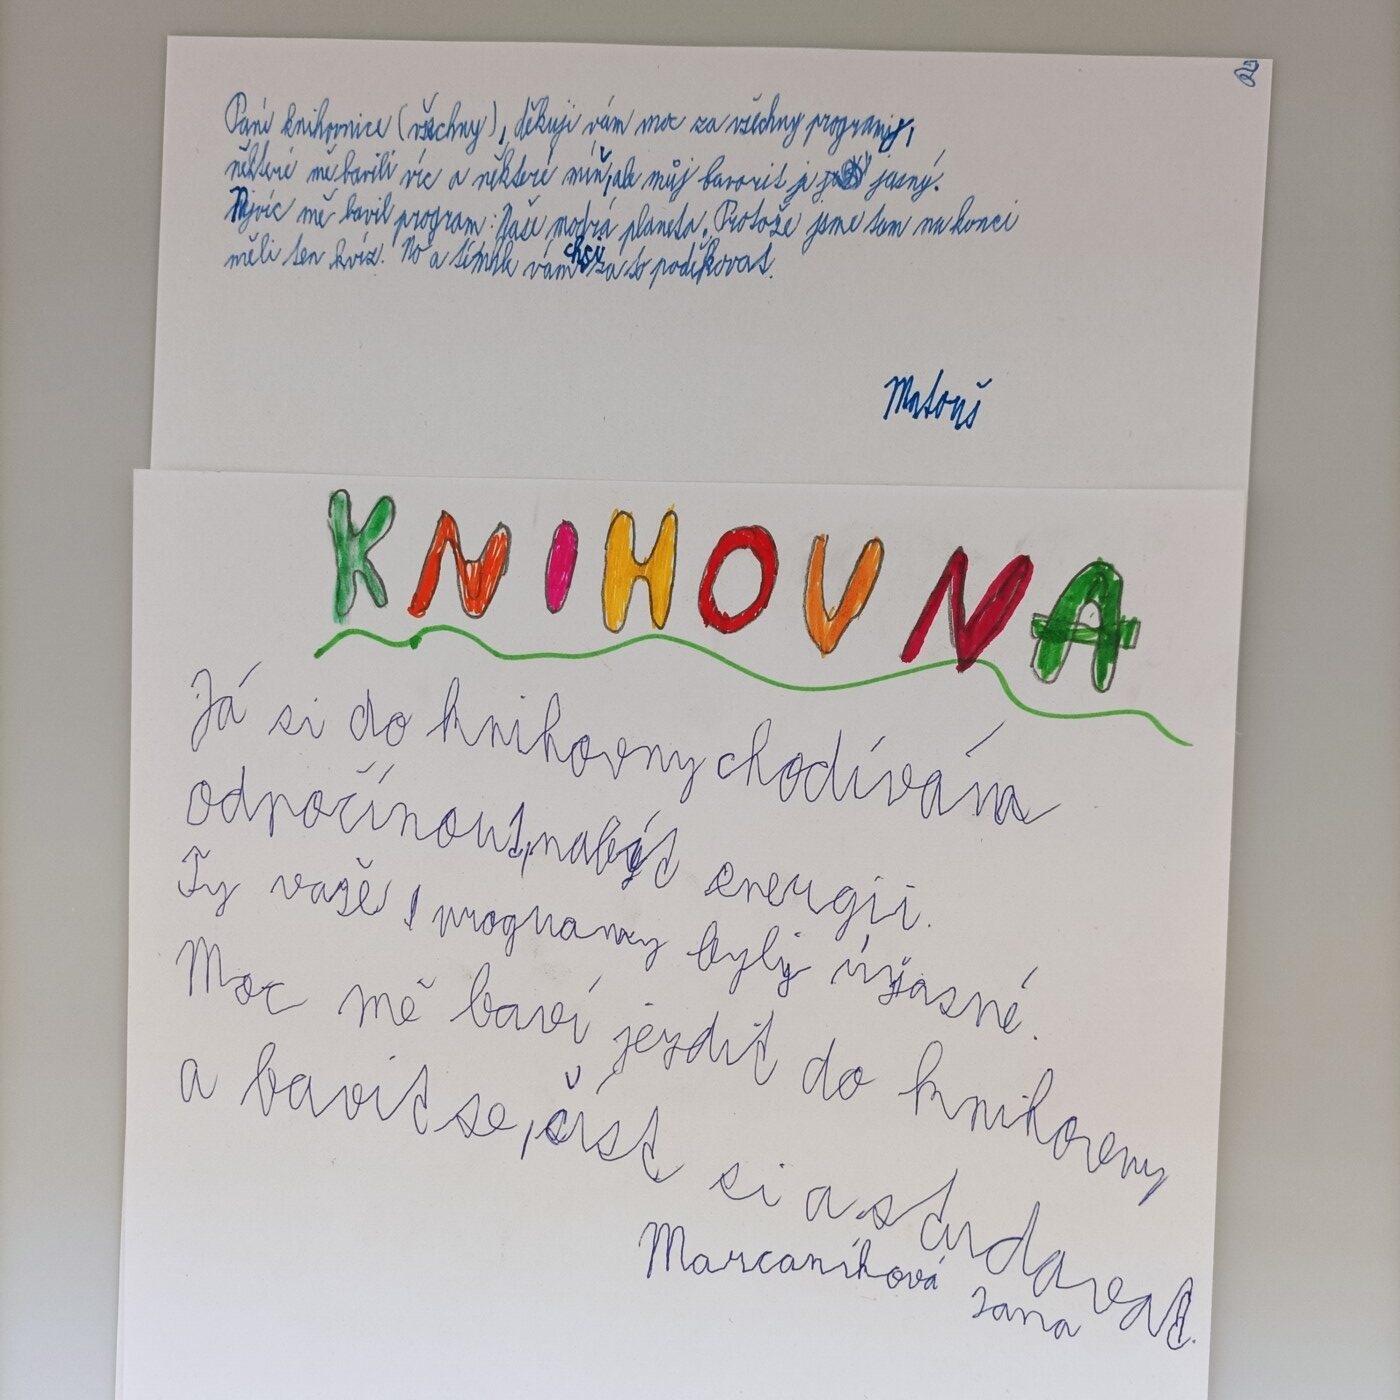 Paní knihovnice (všechny), děkuji vám moc za všechny programy,
některé mě bavili víc a některé míň, ale můj favorit je jasný.
Nejvíc mě bavil program: Naše modrá planeta. Protože jsme tam na konci
měli ten kvíz. No a tímhle vám chci za to poděkovat.
Matouš
KNIHOVNA
Já si do knihovny chodívám
odpočínout, nabýt energii.
Ty vaše programy byly úžasné.
Moc mě baví jezdit do knihoveny
a bavit se, číst si a studavat.
Marcaníková
Jana